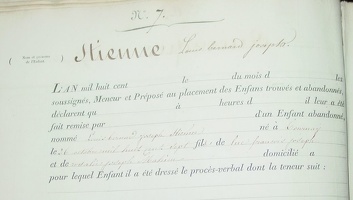 N° 7.
Stienne Louis bernard josephe.
L'AN mil huit cent le du mois d les
soussignés, Meneur et Préposé au placement des Enfans trouvés et abandonnés,
déclarent qu à heures d il leur a été
fait remise par d'un Enfant abandonné,
nommé Louis bernard joseph Stienne né à
le 26 mil huit cent sept fils de
et de domicilié à
pour lequel Enfant il a été dressé le procès-verbal dont la teneur suit :